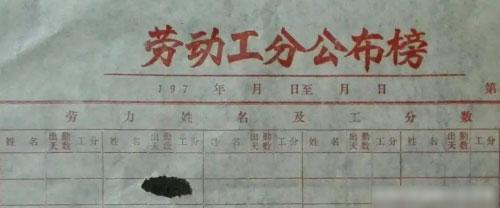 劳动工分公布榜
197 年 月 日至 月 日 第
劳力姓名及工分数
姓名 出勤天数 工分 姓名 出勤天数 工分 姓名 出勤天数 工分 姓名 出勤天数 工分 姓名 出勤天数 工分